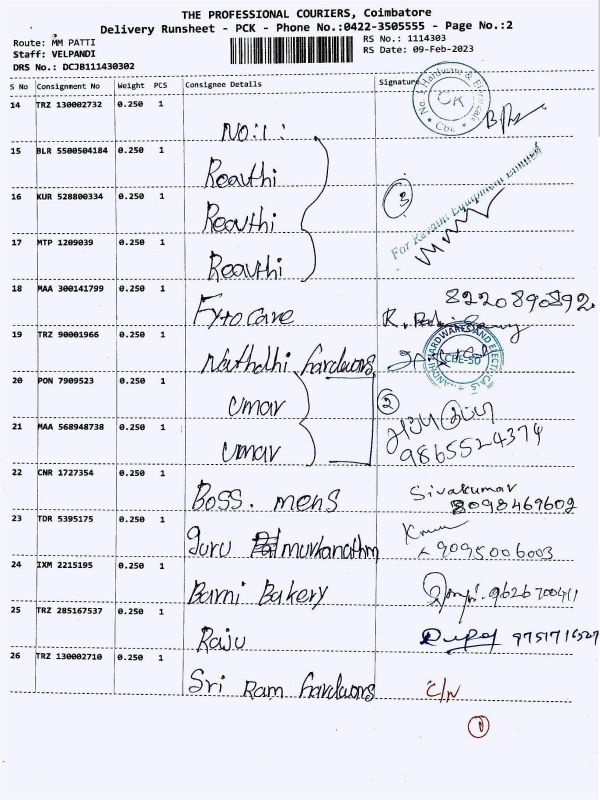 THE PROFESSIONAL COURIERS, Coimbatore
Delivery Runsheet - PCK - Phone No.:0422-3505555 - Page No.:2
Route: MM PATTI
Staff: VELPANDI
DRS No.: DCJB111430302
RS No.: 1114303
RS Date: 09-Feb-2023
S No Consignment No Weight PCS Consignee Details Signature
No. 1 Hardware & CK Cbe
14 TRZ 130002732 0.250 1 No:1:
15 BLR 5500504184 0.250 1 Reavthi
16 KUR 528800334 0.250 1 Reavthi 3
For Equipment Limited
17 MTP 1209039 0.250 1 Reavthi
18 MAA 300141799 0.250 1 Fyto Care 8220890892.
19 TRZ 90001966 0.250 1 hardwors
HARDWARES AND ELECTRICALS CBE-50
20 PON 7909523 0.250 1 Umar 2
21 MAA 568948738 0.250 1 Umar 9865524374
22 CNR 1727354 0.250 1 Boss. mens Sivakumar 8098469602
23 TDR 5395175 0.250 1 Guru 9095006003
24 IXM 2215195 0.250 1 Barni Bakery 9626700411
25 TRZ 285167537 0.250 1 Raju
26 TRZ 130002710 0.250 1 Sri Ram hardwors C/N
1